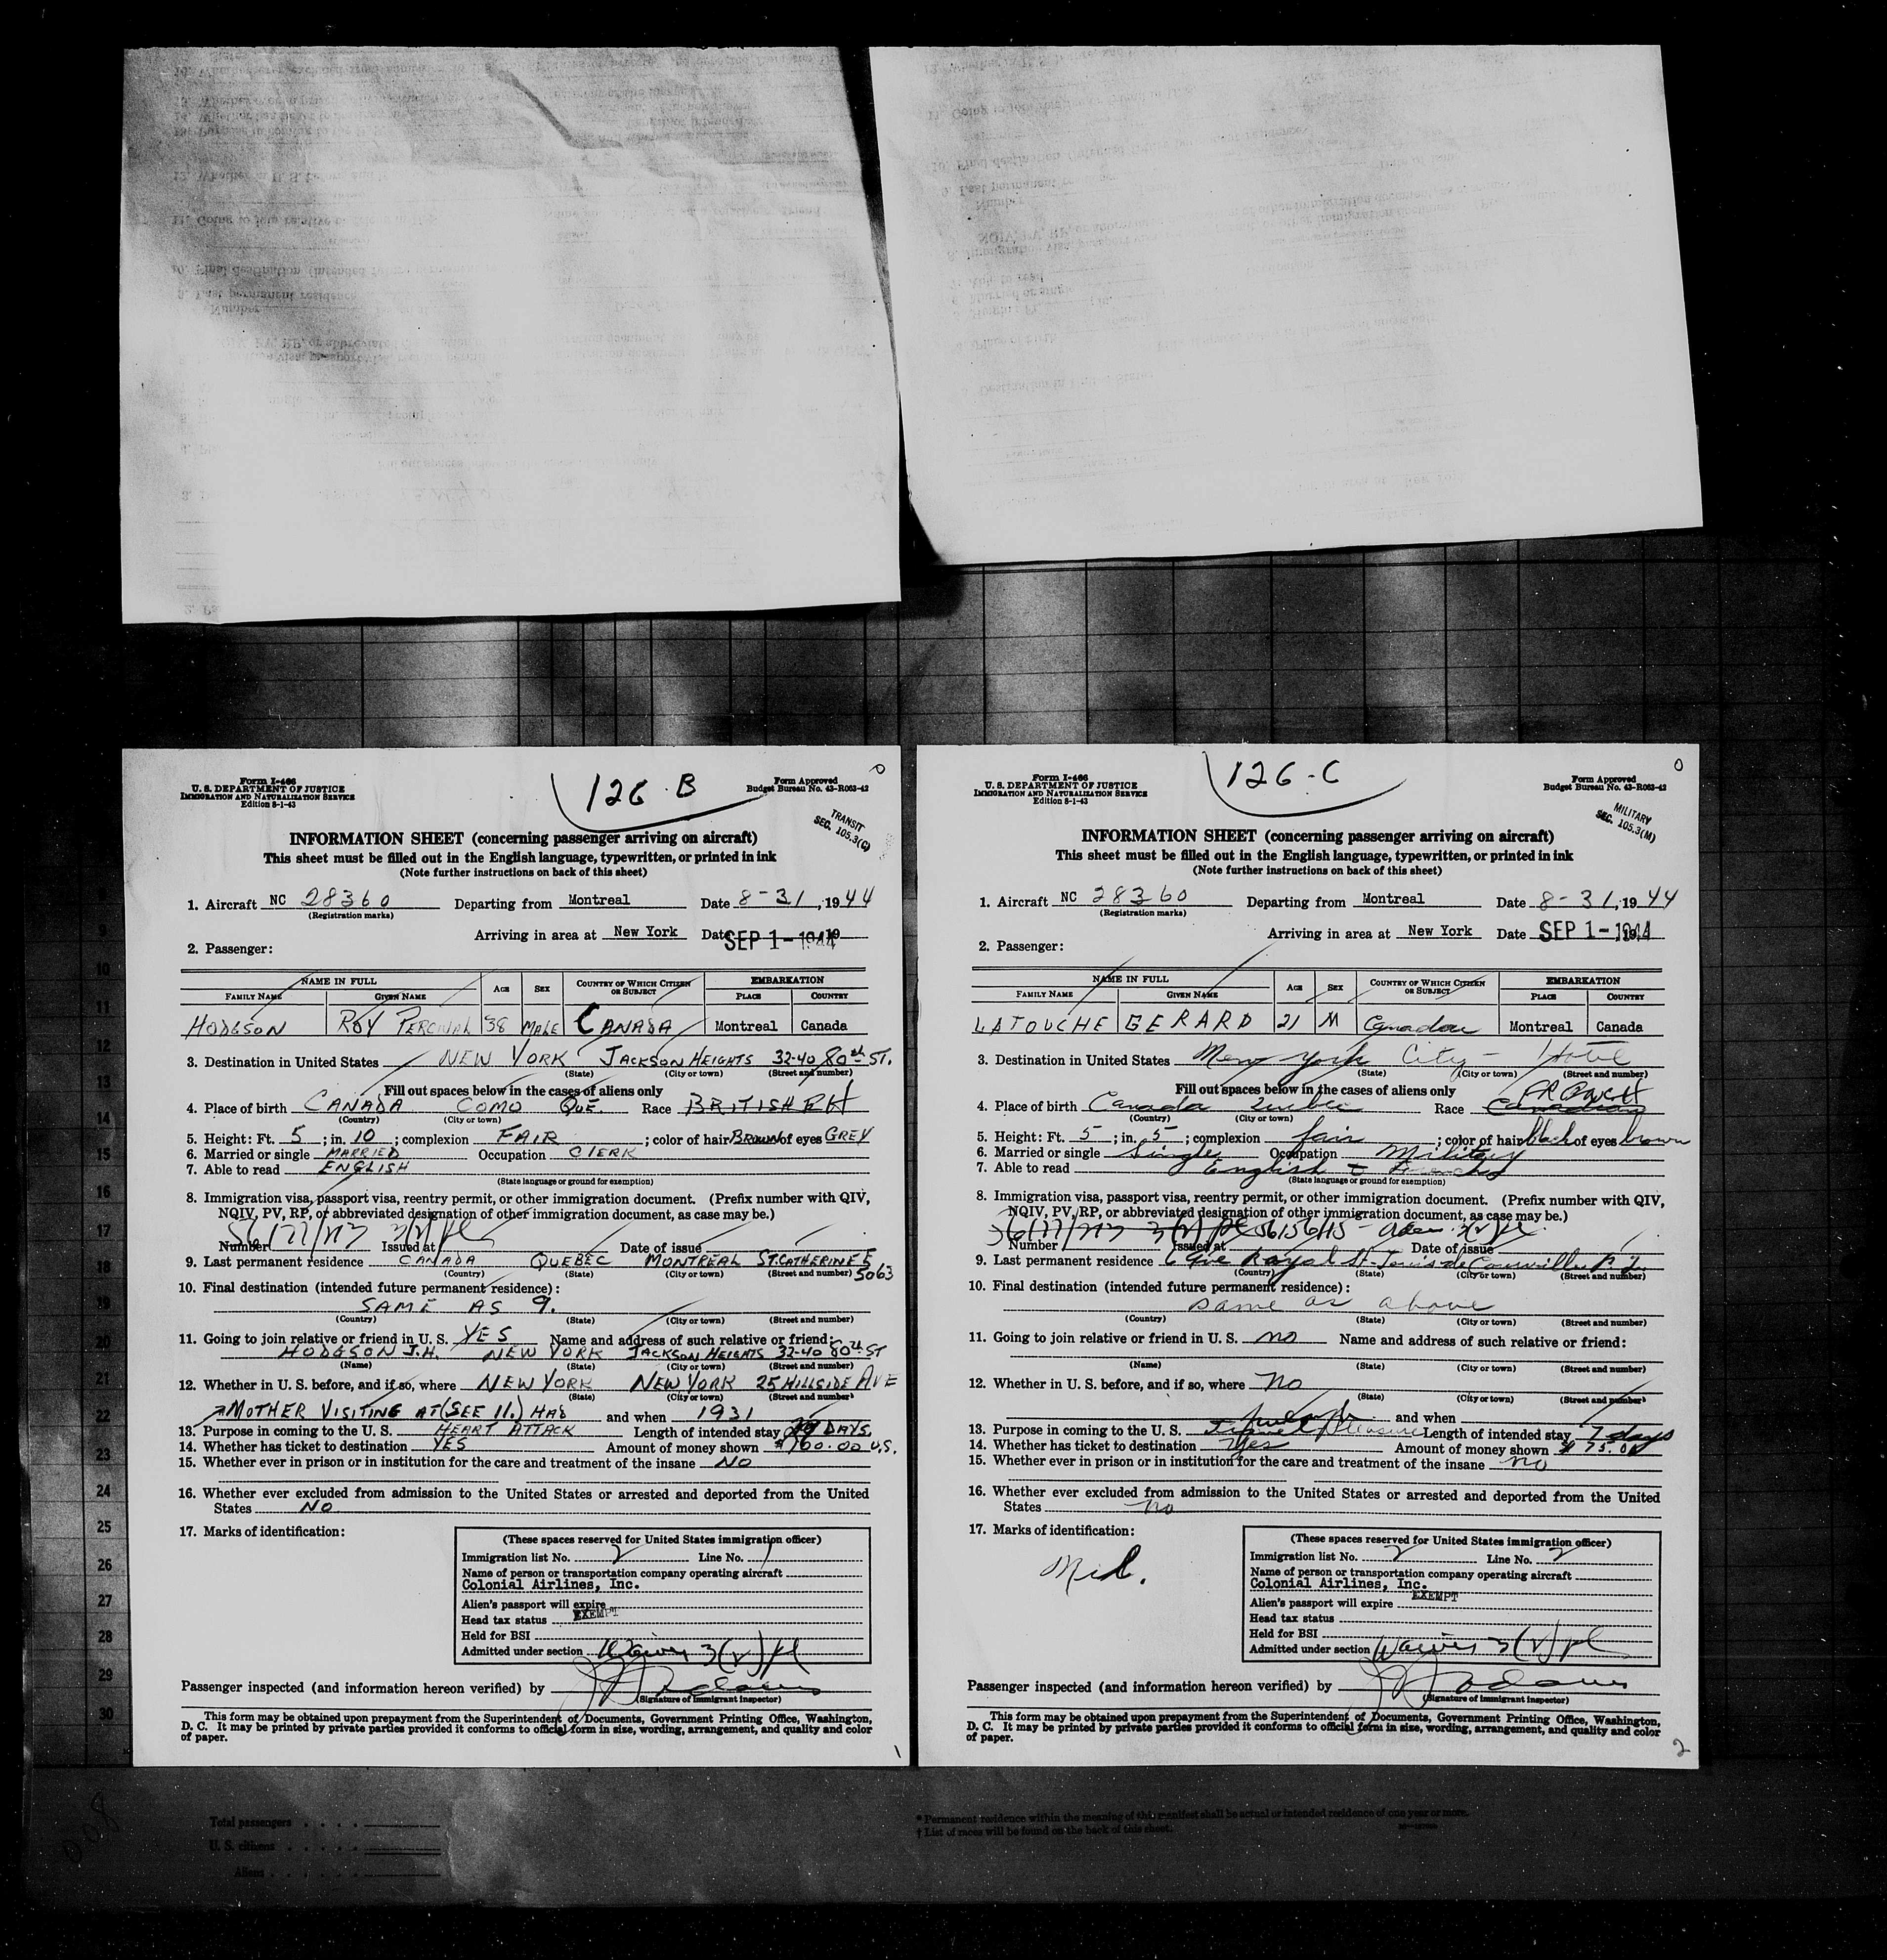 Form I-466
U. S. DEPARTMENT OF JUSTICE
IMMIGRATION AND NATURALIZATION SERVICE
Edition 8-1-43
126-B
Form Approved
Budget Bureau No. 43-R063-42
TRANSIT
SEC. 105.3(G)
INFORMATION SHEET (concerning passenger arriving on aircraft)
This sheet must be filled out in the English language, typewritten, or printed in ink
(Note further instructions on back of this sheet)
1. Aircraft NC 28360 Departing from Montreal Date 8-31, 1944
(Registration marks)
Arriving in area at New York Date SEP 1-1944 19
2. Passenger:
NAME IN FULL AGE SEX COUNTRY OF WHICH CITIZEN OR SUBJECT EMBARKATION
FAMILY NAME GIVEN NAME PLACE COUNTRY
HODGSON ROY PERCIVAL 38 MALE CANADA Montreal Canada
3. Destination in United States NEW YORK JACKSON HEIGHTS 32-40 80th ST.
(State) (City or town) (Street and number)
Fill out spaces below in the cases of aliens only
4. Place of birth CANADA COMO QUE. Race BRITISH
(Country) (City or town)
5. Height: Ft. 5; in. 10; complexion FAIR; color of hair BROWN of eyes GREY
6. Married or single MARRIED Occupation CLERK
7. Able to read ENGLISH
(State language or ground for exemption)
8. Immigration visa, passport visa, reentry permit, or other immigration document. (Prefix number with QIV,
NQIV, PV, RP, or abbreviated designation of other immigration document, as case may be.)
Number Issued at Date of issue
9. Last permanent residence CANADA QUEBEC MONTREAL ST. CATHERINE E
(Country) (State) (City or town) (Street and number) 5063
10. Final destination (intended future permanent residence):
SAME AS 9.
(Country) (State) (City or town) (Street and number)
11. Going to join relative or friend in U. S. YES Name and address of such relative or friend:
HODGSON J.H. NEW YORK JACKSON HEIGHTS 32-40 80th ST
(Name) (State) (City or town) (Street and number)
12. Whether in U. S. before, and if so, where NEW YORK NEW YORK 25 HILLSIDE AVE
(State) (City or town) (Street and number)
MOTHER VISITING AT (SEE 11.) HAS and when 1931
13. Purpose in coming to the U. S. HEART ATTACK Length of intended stay DAYS.
14. Whether has ticket to destination YES Amount of money shown $160.00 U.S.
15. Whether ever in prison or in institution for the care and treatment of the insane NO
16. Whether ever excluded from admission to the United States or arrested and deported from the United
States NO
17. Marks of identification:
(These spaces reserved for United States immigration officer)
Immigration list No. 2 Line No. 1
Name of person or transportation company operating aircraft
Colonial Airlines, Inc.
Alien's passport will expire
EXEMPT
Head tax status
Held for BSI
Admitted under section Waiver 3(2)
Passenger inspected (and information hereon verified) by Adams
(Signature of immigrant inspector)
This form may be obtained upon prepayment from the Superintendent of Documents, Government Printing Office, Washington,
D. C. It may be printed by private parties provided it conforms to official form in size, wording, arrangement, and quality and color
of paper.
1
Form I-466
U. S. DEPARTMENT OF JUSTICE
IMMIGRATION AND NATURALIZATION SERVICE
Edition 8-1-43
126-C
Form Approved
Budget Bureau No. 43-R063-42
MILITARY
SEC. 105.3(M)
INFORMATION SHEET (concerning passenger arriving on aircraft)
This sheet must be filled out in the English language, typewritten, or printed in ink
(Note further instructions on back of this sheet)
1. Aircraft NC 28360 Departing from Montreal Date 8-31, 1944
(Registration marks)
Arriving in area at New York Date SEP 1-1944
2. Passenger:
NAME IN FULL AGE SEX COUNTRY OF WHICH CITIZEN OR SUBJECT EMBARKATION
FAMILY NAME GIVEN NAME PLACE COUNTRY
LATOUCHE GERARD 21 M Canada Montreal Canada
3. Destination in United States New York City - Hotel
(State) (City or town) (Street and number)
Fill out spaces below in the cases of aliens only
4. Place of birth Canada Quebec Race Canadian
(Country) (City or town)
5. Height: Ft. 5; in. 5; complexion fair; color of hair black of eyes brown
6. Married or single Single Occupation Military
7. Able to read English
(State language or ground for exemption)
8. Immigration visa, passport visa, reentry permit, or other immigration document. (Prefix number with QIV,
NQIV, PV, RP, or abbreviated designation of other immigration document, as case may be.)
Number Issued at Date of issue
9. Last permanent residence 6 Ave Royal St-Louis de Courville P. Q.
(Country) (State) (City or town) (Street and number)
10. Final destination (intended future permanent residence):
same as above
(Country) (State) (City or town) (Street and number)
11. Going to join relative or friend in U. S. no Name and address of such relative or friend:
(Name) (State) (City or town) (Street and number)
12. Whether in U. S. before, and if so, where No
(State) (City or town) (Street and number)
and when
13. Purpose in coming to the U. S. Pleasure Length of intended stay 7 days
14. Whether has ticket to destination Yes Amount of money shown $ 75.00
15. Whether ever in prison or in institution for the care and treatment of the insane no
16. Whether ever excluded from admission to the United States or arrested and deported from the United
States no
17. Marks of identification:
(These spaces reserved for United States immigration officer)
Immigration list No. 2 Line No. 2
Name of person or transportation company operating aircraft
Colonial Airlines, Inc.
EXEMPT
Alien's passport will expire
Head tax status
Held for BSI
Admitted under section Waiver 3(2)
Passenger inspected (and information hereon verified) by Adams
(Signature of immigrant inspector)
This form may be obtained upon prepayment from the Superintendent of Documents, Government Printing Office, Washington,
D. C. It may be printed by private parties provided it conforms to official form in size, wording, arrangement, and quality and color
of paper.
2
Total passengers
U. S. citizens
Aliens
* Permanent residence within the meaning of this manifest shall be actual or intended residence of one year or more.
† List of races will be found on the back of this sheet.